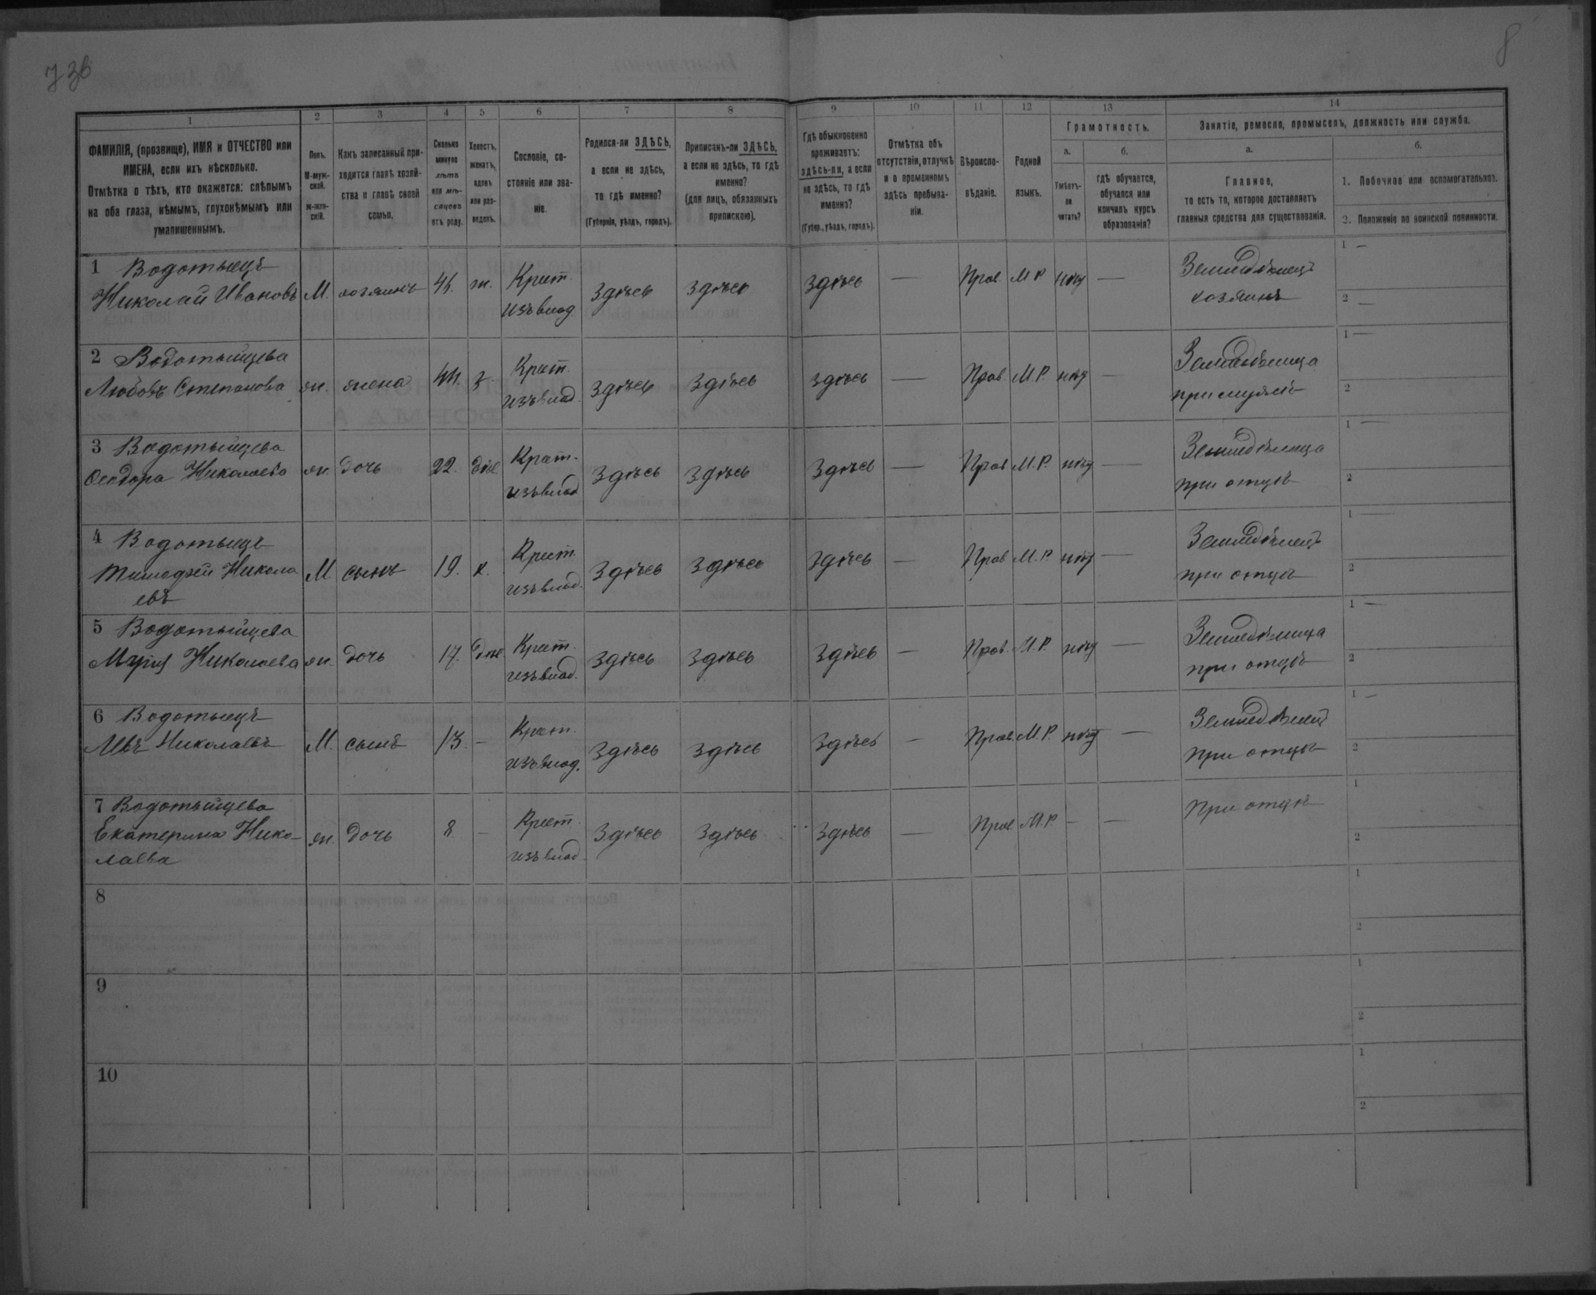 736
8
1
2
3
4
5
6
7
8
9
10
11
12
13
14
ФАМИЛІЯ, (прозвище), ИМЯ и ОТЧЕСТВО или
ИМЕНА, если ихъ нѣсколько.
Отмѣтка о тѣхъ, кто окажется: слѣпымъ
на оба глаза, нѣмымъ, глухонѣмымъ или
умалишеннымъ.
Полъ.
М-муж-
ской.
Ж-жен-
скій.
Какъ записанный при-
ходится главѣ хозяй-
ства и главѣ своей
семьи.
Сколько
минуло
лѣтъ
или мѣ-
сяцевъ
отъ роду.
Холостъ,
женатъ,
вдовъ
или раз-
веденъ.
Сословіе, со-
стояніе или зва-
ніе.
Родился-ли ЗДѢСЬ,
а если не здѣсь,
то гдѣ именно?
(Губернія, уѣздъ, городъ).
Приписанъ-ли ЗДѢСЬ,
а если не здѣсь, то гдѣ
именно?
(для лицъ, обязанныхъ
припискою).
Гдѣ обыкновенно
проживаетъ:
здѣсь-ли, а если
не здѣсь, то гдѣ
именно?
(Губер., уѣздъ, городъ).
Отмѣтка объ
отсутствіи, отлучкѣ
и о временномъ
здѣсь пребыва-
ніи.
Вѣроиспо-
вѣданіе.
Родной
языкъ.
Грамотность.
а.
Умѣетъ-
ли
читать?
б.
гдѣ обучается,
обучался или
кончилъ курсъ
образованія?
Занятіе, ремесло, промыселъ, должность или служба.
а.
Главное,
то есть то, которое доставляетъ
главныя средства для существованія.
б.
1. Побочное или вспомогательное.
2. Положеніе по воинской повинности.
1 Водотыецъ
Николай Ивановъ М. хозяинъ 46. ж. Крест. изъ влад. здѣсь здѣсь здѣсь — Прав М.Р. нѣт — Земледѣлецъ
хозяинъ
1 —
2 —
2 Водотыйцева
Любовь Степанова ж. жена 44. з. Крест. изъ влад. здѣсь здѣсь здѣсь — Прав М.Р. нѣт — Земледѣлица
при мужѣ
1 —
2
3 Водотыйцева
Ѳеодора Николаева ж. дочь 22. дѣв. Крест. изъ влад здѣсь здѣсь здѣсь — Прав М.Р. нѣт — Земледѣлица
при отцѣ
1 —
2
4 Водотыецъ
Тимофей Никола
евъ М сынъ 19. х. Крест. изъ влад. здѣсь здѣсь здѣсь — Прав М.Р. нѣт — Земледѣлецъ
при отцѣ
1 —
2
5 Водотыйцева
Марія Николаева ж. дочь 17. дѣв. Крест. изъ влад. здѣсь здѣсь здѣсь — Прав. М.Р. нѣт — Земледѣлица
при отцѣ
1 —
2
6 Водотыецъ
Левъ Николаевъ М. сынъ 13. — Крест. изъ влад. здѣсь здѣсь здѣсь — Прав М.Р. нѣт — Земледѣлецъ
при отцѣ
1 —
2
7 Водотыйцева
Екатерина Нико-
лаева ж. дочь 8. — Крест. изъ влад. здѣсь здѣсь здѣсь — Прав М.Р. — — При отцѣ
1
2
8
1
2
9
1
2
10
1
2